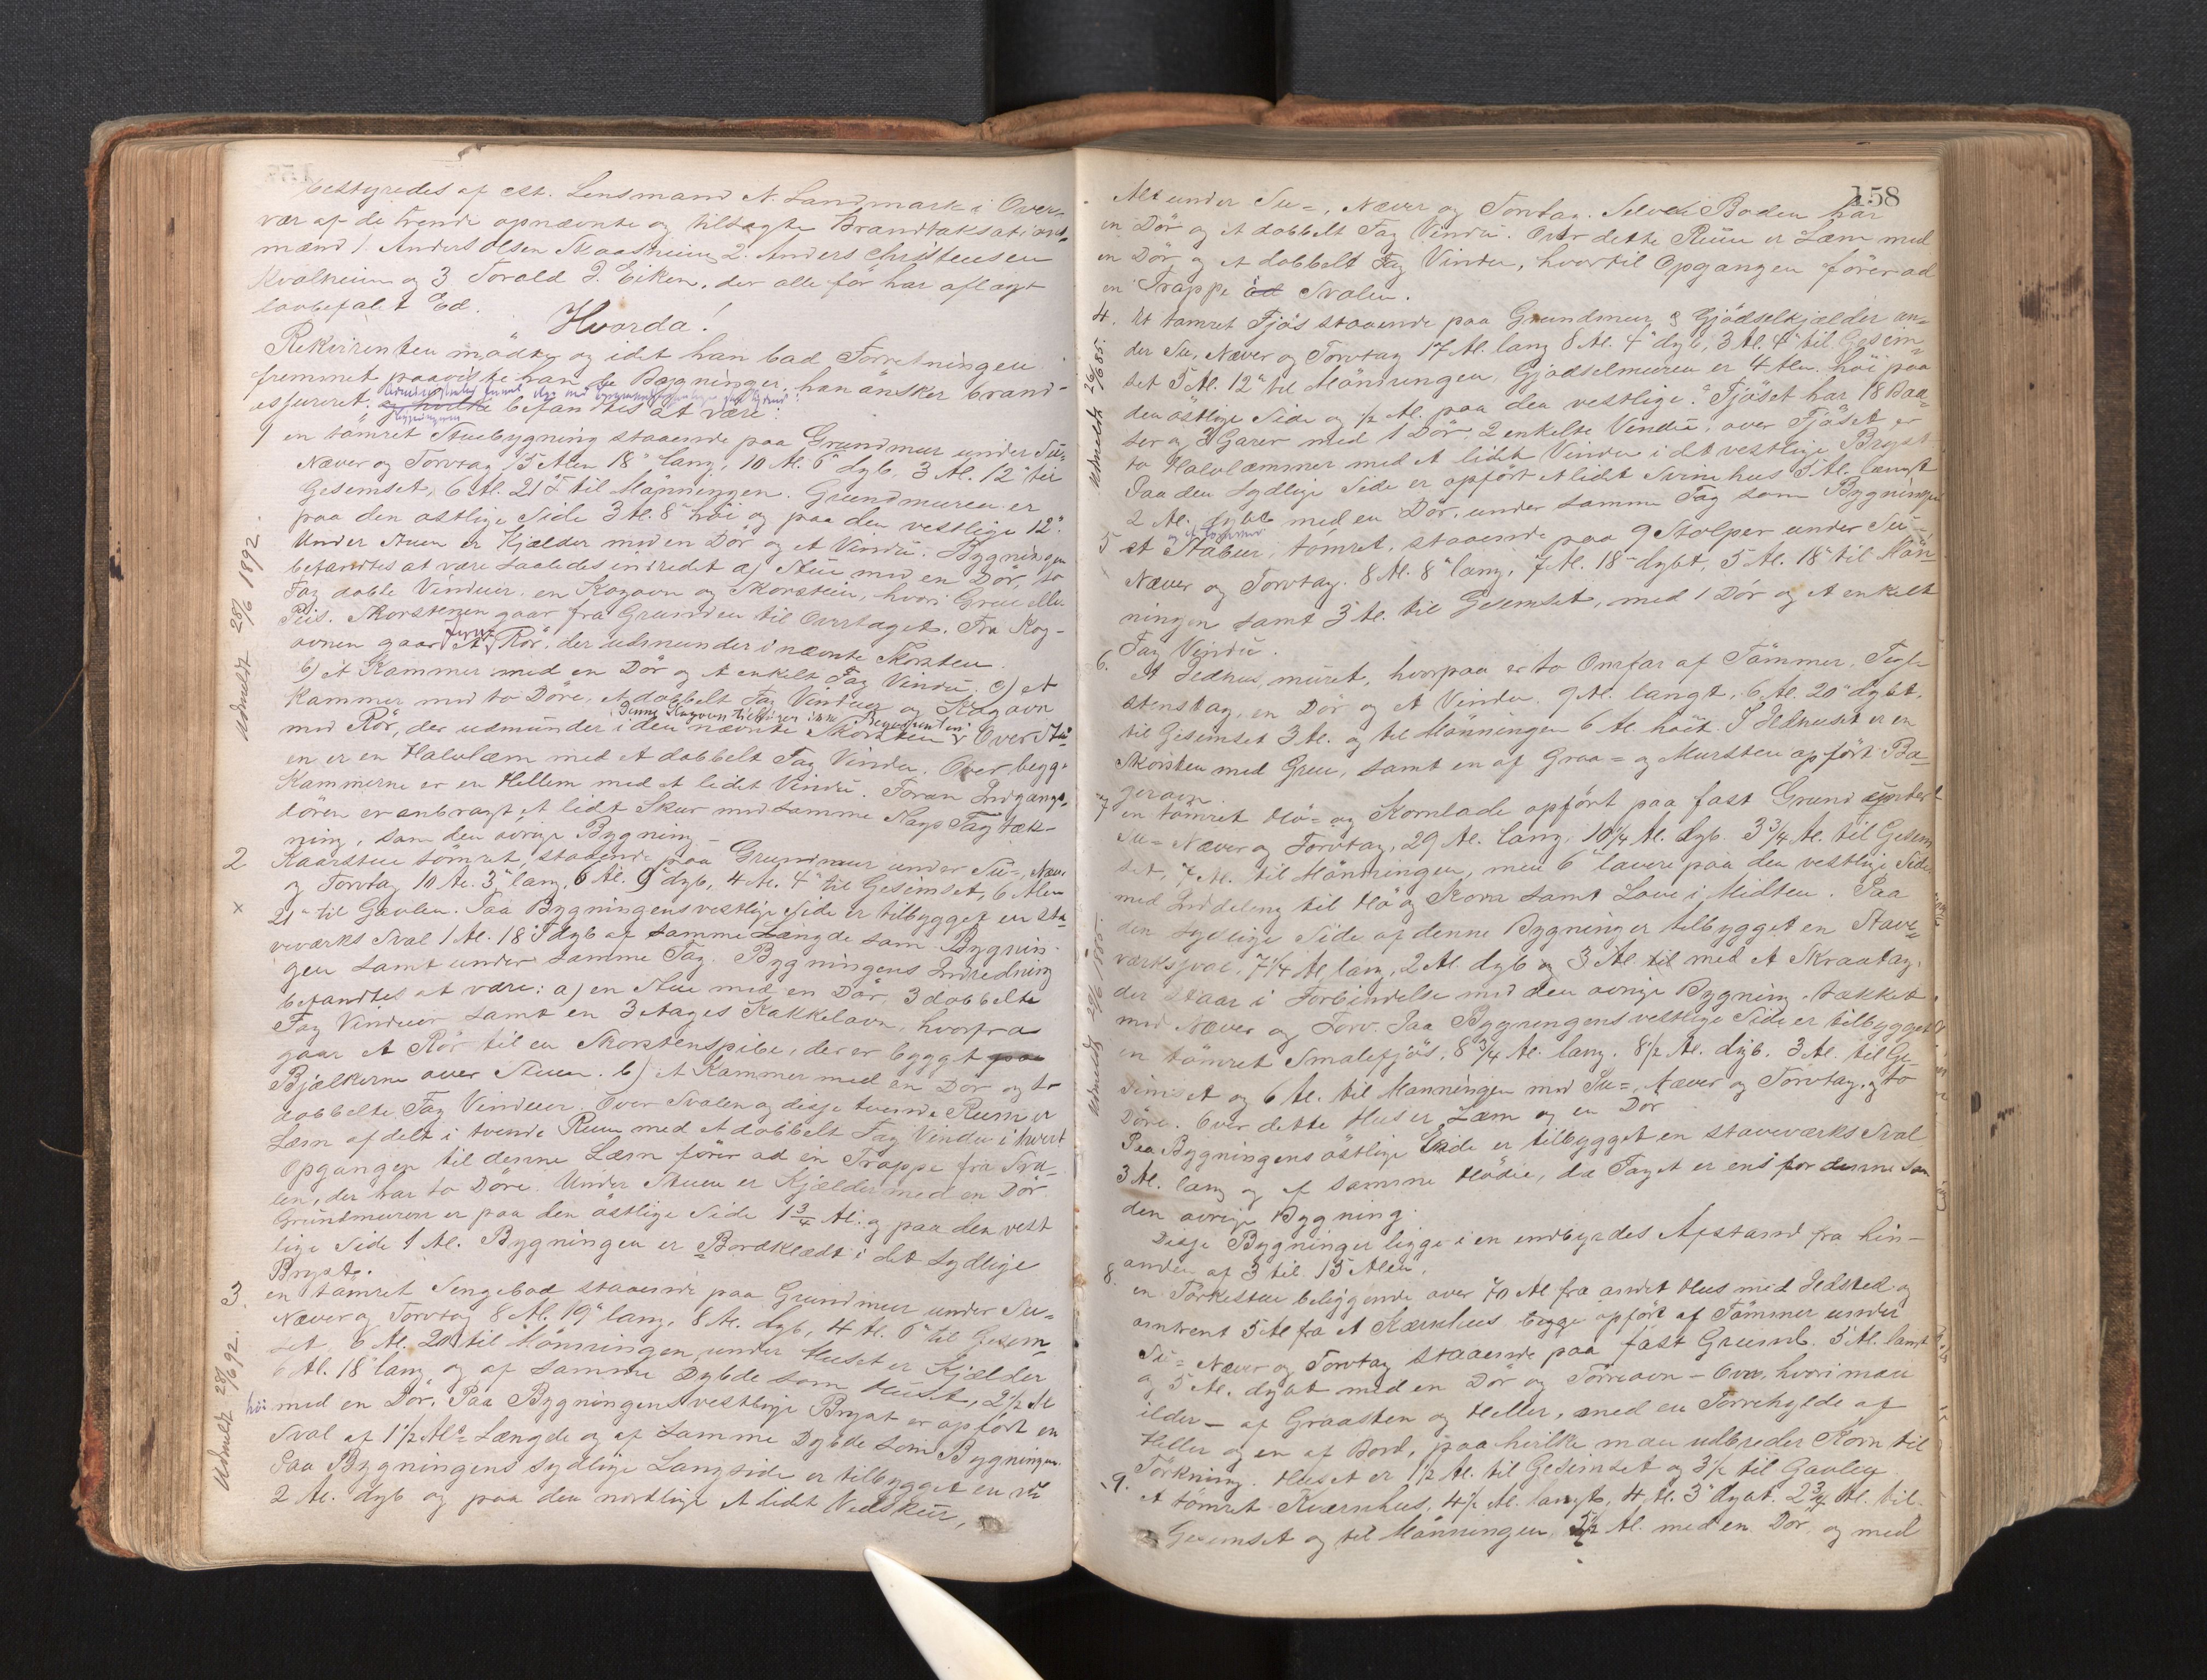 bestyredes af cst. Lensmand N. Landmark i Over-
vær af de trende opnævnte og tilsagte Brandtaksations-
mænd 1. Anders Olsen Maaseim, 2. Anders Christensen
Kvalheim og 3 Torald I. Eiken, der alle før har aflagt
lovbefalet Ed.
Hvorda!
Rekvirenten mødte og idet han bad Forretningen
fremmet paaviste han de Bygninger, han ønsker brand-
assureret. og hvilke befandtes at være:
1 en tømret Stuebygning staaende paa Grundmur under Su-
Næver og Torvtag 15 Alen 18" lang, 10 Al. 6" dyb, 3 Al. 12" til
Gesemset, 6 Al. 21" til Mønningen. Grundmuren er
paa den østlige Side 3 Al. 8" høi og paa den vestlige 12".
Under Stuen er Kjælder med en Dør og et Vindu. Bygningen
befandtes at være saaledes indredet a) Stue med en Dør, to
Fag doble Vinduer, en Kogovn og Skorsten, hvori Grue eller
Peis. Skorstenen gaar fra Grunden til Overtaget. Fra Kog-
ovnen gaar et Rør, der udmunder i nævnte Skorsten.
b) et Kammer med en Dør og et enkelt Fag Vindu. c) et
Kammer med to Døre, et dobbelt Fag Vinduer og Kogovn
Denne Kogovn tilhører ikke
med Rør, der udmunder i den nævnte Skorsten. Over Stu-
en er en Halvlæm med et dobbelt Fag Vindu. Over begge
Kammerne er en Hellem med et lidet Vindu. Foran Indgangs-
døren er anbragt et lidt Skur med samme Slags Tagtæk-
ning, som den øvrige Bygning.
Udmeldt 28/6 1892.
2 Kaarstue tømret, staaende paa Grundmur under Su-, Næver
x og Torvtag 10 Al. 3" lang, 6 Al. 9" dyb, 4 Al. 4" til Gesimset, 6 Alen
21" til Gavlen. Paa Bygningens vestlige Side er tilbygget en sta-
veværks Sval 1 Al. 18" dyb af samme Længde som Bygnin-
gen samt under samme Tag. Bygningens Indredning
befandtes at være: a) en Stue med en Dør, 3 dobbelte
Fag Vinduer samt en 3 Etages Kakkelovn, hvorfra
gaar et Rør til en Skorstenspibe, der er bygget paa
Bjælkerne over Stuen. b) et Kammer med en Dør og to
dobbelte Fag Vinduer. Over Svalen og disse tvende Rum er
Læm afdelt i tvende Rum med et dobbelt Fag Vindu i hvert
Opgangen til denne Læm fører ad en Trappe fra Sva-
len, der har to Døre. Under Stuen er Kjælder med en Dør
Grundmuren er paa den østlige Side 1 3/4 Al. og paa den vest
lige Side 1 Al. Bygningen er Bordklædt i det Sydlige
Bryst.
3. en tømret Sengebod staaende paa Grundmur under Su-
Næver og Torvtag 8 Al. 19" lang, 8 Al. dyb, 4 Al. 6" til Gesem-
set, 6 Al. 20 til Mønningen, under Huset er Kjælder
6 Al. 18" lang og af samme Dybde som Huset, 2 1/2 Al
høi med en Dør. Paa Bygningens vestlige Bryst er opført en
Sval af 1 1/2 Al. Længde og af samme Dybde som Bygningen.
Paa Bygningens sydlige Langside er tilbygget en
2 Al. dyb og paa den nordlige et lidt Vedskur,
Udmeldt 28/6 92.
158
Alt under Su-, Næver og Torvtag. Selve Boden har
en Dør og et dobbelt Fag Vindu. Over dette Rum er Læm med
en Dør og et dobbelt Fag Vindu, hvortil Opgangen fører ad
en Trappe Svalen.
4. Et tømret Fjøs staaende paa Grundmur og Gjødselkjælder un-
der Su, Næver og Torvtag 17 Al. lang 8 Al. 4" dyb, 3 Al. 4" til Gesim-
set 5 Al. 12" til Mønningen. Gjødselmuren er 4 Alen høi paa
den østlige Side og 1/2 Al. paa den vestlige. Fjøset har 18 Baa-
ser og 3 Garer med 1 Dør, 2 enkelte Vindu, over Fjøset er
to Halvlæmmer med et lidet Vindu i det vestlige Bryst
Paa den sydlige Side er opført et lidet Svinehus 3 Al. langt
2 Al. dybt med en Dør, under samme Tag som Bygningen
Udmeldt 29/6 85.
5 et Stabur, tømret, staaende paa 9 Stolper under Su-
Næver og Torvtag. 8 Al. 8" lang, 7 Al. 18" dybt, 5 Al. 18" til Møn-
ningen samt 3 Al. til Gesemset, med 1 Dør og et enkelt
Fag Vindu.
6. Et Ildhus, muret, hvorpaa er to Omfar af Tømmer, Tegl-
stenstag, en Dør og et Vindu. 9 Al. langt, 6 Al. 20" dybt,
til Gesemset 3 Al. og til Mønningen 6 Al. høit. I Ildhuset er en
Skorsten med Grue, samt en af Graa- og Mursten opført Ba-
gerovn.
7 en tømret Hø- og Kornlade opført paa fast Grund under
Su- Næver og Torvtag, 29 Al. lang, 10 1/4 Al. dyb. 3 3/4 Al. til Gesem
set, 7 Al. til Mønningen, men 6" lavere paa den vestlige Side
med Inddeling til Hø og Korn samt Love i Midten. Paa
den sydlige Side af denne Bygning er tilbygget en Stave-
værkssval, 7 1/4 Al lang, 2 Al. dyb og 3 Al til med et Skraatag,
der staar i Forbindelse med den øvrige Bygning. Tækket
med Næver og Torv. Paa Bygningens vestlige Side er tilbygget
en tømret Smalefjøs, 8 3/4 Al. lang, 8 1/2 Al. dyb. 3 Al. til Ge-
simset og 6 Al. til Mønningen med Su-, Næver og Torvtag, og to
Døre. Over dette Hus er Læm og en Dør
Paa Bygningens østlige Ende er tilbygget en staveværks Sval
3 Al. lang og af samme Høide, da Taget er ens for denne som
den øvrige Bygning.
Disse Bygninger ligge i en indbyrdes Afstand fra hin-
anden af 3 til 15 Alen.
Udmeldt 29/6 1885.
8. en Tørkestue beliggende over 70 Al fra andet Hus med Ildsted og
omtrent 5 Al fra et Kærnhus begge opført af Tømmer under
Su- Næver og Torvtag staaende paa fast Grund. 5 Al. langt
og 5 Al. dybt med en Dør og Tørreovn - Ovn, hvori man
ilder - af Graasten og Heller, med en Tørrehylde af
Heller og en af Bord, paa hvilke man udbreder Korn til
Tørkning. Huset er 1 1/2 Al. til Gesemset og 3 1/2 til Gavlen
9. et tømret Kværnhus, 4 1/2 Al. langt, 4 Al. 3" dybt. 2 3/4 Al. til
Gesemset og til Mønningen, 5 1/2 Al. med en Dør, og med